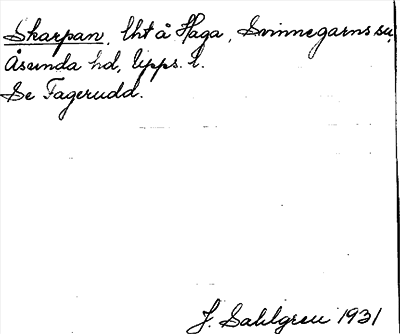 Skarpan, lht å Haga, Svinnegarns sn,
Åsunda hd, Upps. l.
Se Fagerudd.
J. Sahlgren 1931